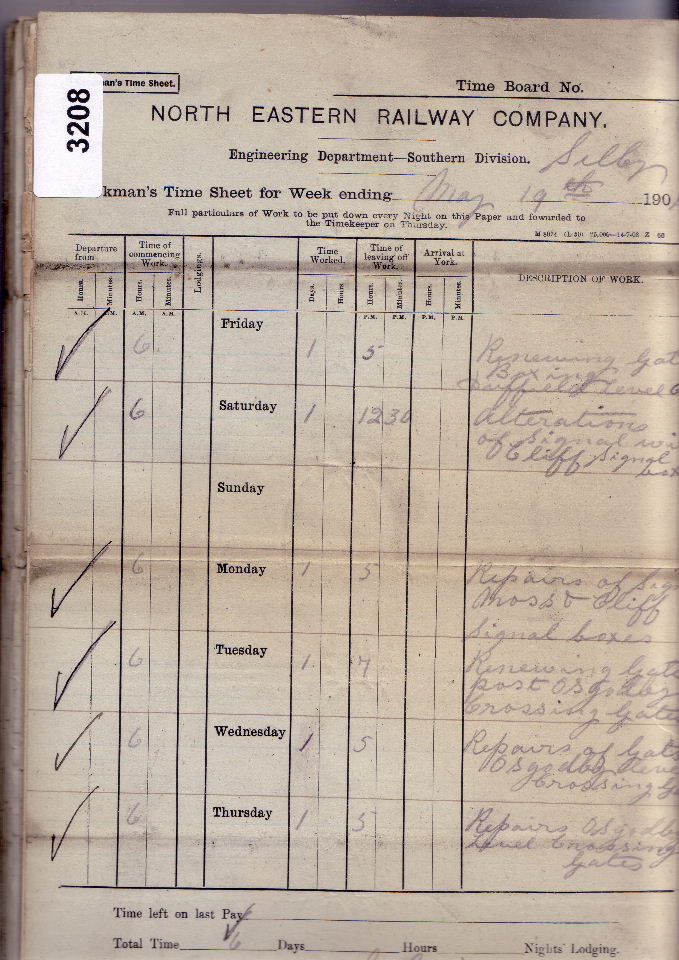 3208
man's Time Sheet.
Time Board No.
NORTH EASTERN RAILWAY COMPANY.
Engineering Department—Southern Division. Selby
kman's Time Sheet for Week ending May 19th 190
Full particulars of Work to be put down every Night on this Paper and fowarded to
the Timekeeper on Thursday.
M 8074 (L 50) 25,000—14-7-08 Z 66
Departure from
Time of commencing Work.
Lodgings.
Time Worked.
Time of leaving off Work.
Arrival at York.
DESCRIPTION OF WORK.
Hours. Minutes. Hours. Minutes. Days. Hours Hours. Minutes. Hours. Minutes.
A.M. P.M. A.M. A.M. P.M. P.M. P.M. P.M.
6 Friday 1 5 Renewing Gat
Boxing
Duffield Level C
6 Saturday 1 12 30 Alterations
of Signal wi
Cliff Signal
box
Sunday
6 Monday 1 5 Repairs of Sig
Moss & Cliff
Signal boxes
6 Tuesday 1 7 Renewing Gate
post Osgodby
Crossing Gate
6 Wednesday 1 5 Repairs of Gat
Osgodby Leve
Crossing G
6 Thursday 1 5 Repairs Osgodby
Level Crossing
Gates
Time left on last Pay
Total Time 6 Days Hours Nights' Lodging.